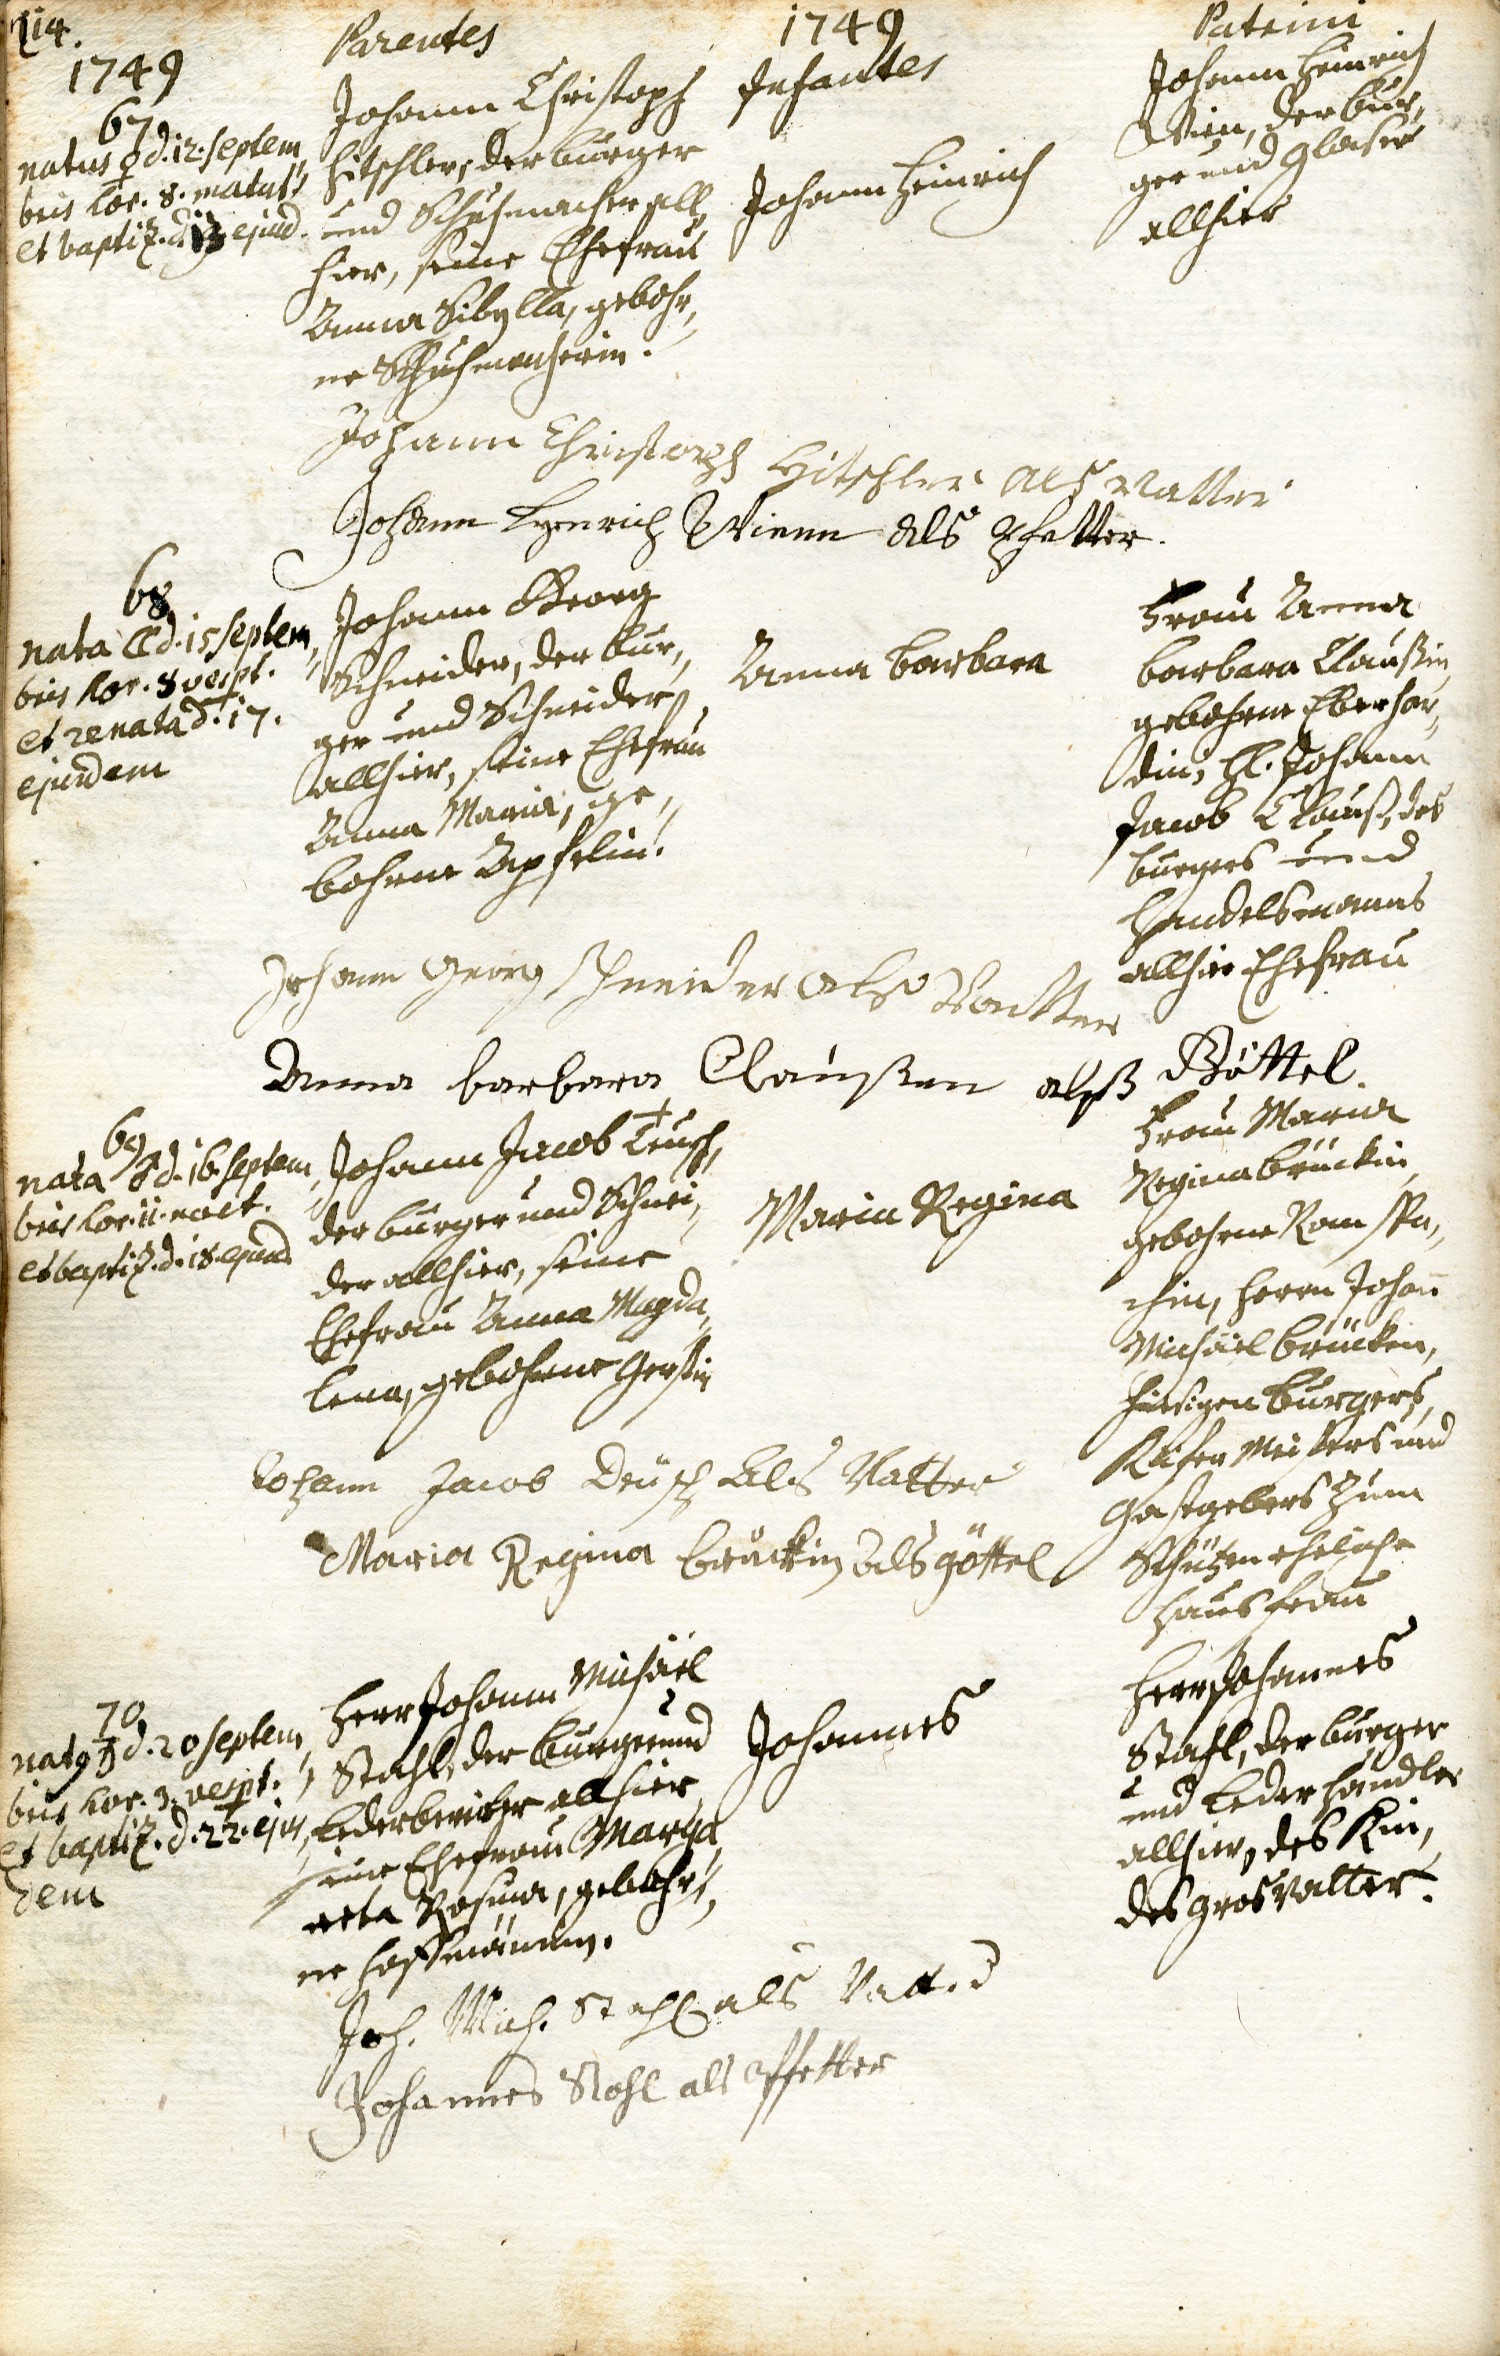 114.
1749
Parentes
1749
Infantes
Patrini
67
natus ♀ d. 12. Septem,,
bris hor. 8. matut.
et baptiz. d. 13 ejusd.
Johann Christoph
Hitschler, der burger
und Schuhmacher all,,
hier, seine Ehefrau
Anna Sibylla, gebohr,,
ne Schuhmacherin.
Johann Heinrich
Johann Heinrich
Wien, der bur,,
ger und Glaser
allhier
Johann Christoph Hitschler als Vatter
Johann Henrich Wienn als Pfetter.
68
nata ☾ d. 15 Septem,,
bris hor. 8 vespt.
et renata d. 17.
ejusdem
Johann Georg
Schneider, der bur,,
ger und Schneider
allhier, seine Ehefrau
Anna Maria, ge,,
bohrne Apfelin.
Anna barbara
Frau Anna
barbara Claußin
gebohrne Eberhar,,
din, H. Johann
Jacob Clauß, des
burgers und
Handelsmanns
allhier Ehefrau
Johann Georg schneider alß Vatter
Anna barbara Claußen alß Göttel.
69
nata ♂ d. 16. Septem,,
bris hor. 11. noct.
et baptiz. d. 18. ejusd
Johann Jacob Teusch,
der burger und Schnei,,
der allhier, seine
Ehefrau Anna Magda,,
lena, gebohrne Gerstin
Maria Regina
Frau Maria
Regina brückin,
gebohrne Ramspa,,
chin, Herrn Johan̄
Michäel brücken,
hiesigen burgers,
Kiefer Meisters und
Gastgebers zum
Schützen eheliche
Hausfrau
Johann Jacob Deusch Als Vatter
Maria Regina brückin als göttel
70
nat9 ♄ d. 20 Septem,,
bris hor. 3. vespt.
et baptiz. d. 22. ejus,,
dem
Herr Johann Michäel
Stahl, der burger und
Lederbereiter allhier
seine Ehefrau Marga,,
reta Rosina, gebohr,,
ne Hoffmännin.
Johannes
Herr Johannes
Stahl, der burger
und Lederhändler
allhier, des Kin,,
des grosvatter.
Joh. Mich. Stahl als Vatter
Johannes Stahl als Pfetter